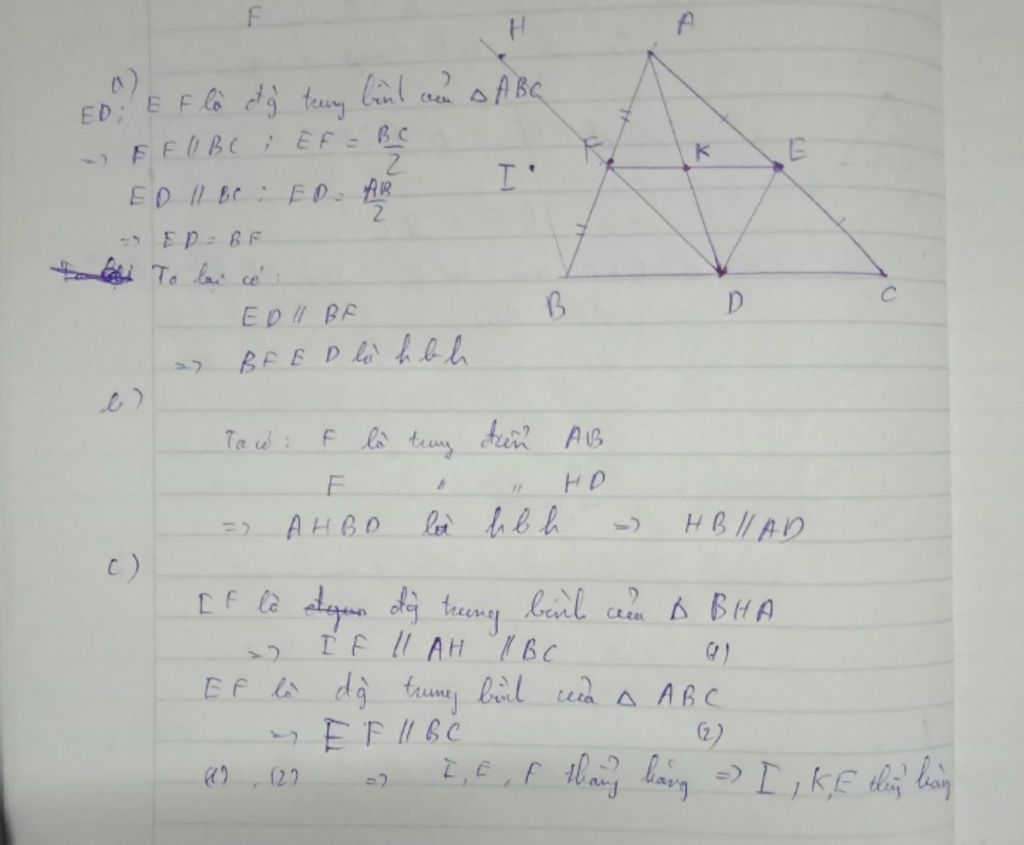 F
H
A
a)
ED; EF là đg trung bình của △ ABC
=> EF // BC ; EF = BC/2
F
K
E
I
ED // BC ; ED = AB/2
=> ED = BF
Ta lại có :
B
D
C
ED // BF
=> BFED là hbh
b)
Ta có : F là trung điểm AB
F " " HD
=> AHBD là hbh => HB // AD
c)
IF là đg trung bình của △ BHA
=> IF // AH // BC (1)
EF là đg trung bình của △ ABC
=> EF // BC (2)
(1) , (2) => I, E, F thẳng hàng => I, K, E thẳng hàng